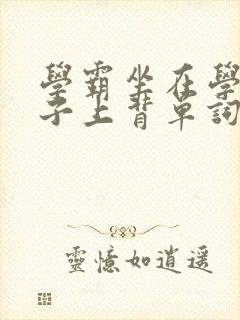 學霸坐在學
子上背單詞
靈憶如逍遥